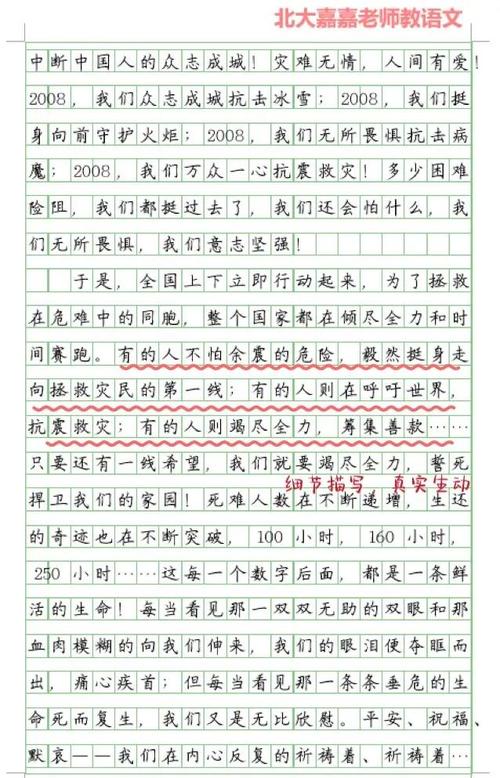 北大嘉嘉老师教语文
中断中国人的众志成城！灾难无情，人间有爱！
2008，我们众志成城抗击冰雪；2008，我们挺
身向前守护火炬；2008，我们无所畏惧抗击病
魔；2008，我们万众一心抗震救灾！多少困难
险阻，我们都挺过去了，我们还会怕什么，我
们无所畏惧，我们意志坚强！
于是，全国上下立即行动起来，为了拯救
在危难中的同胞，整个国家都在倾尽全力和时
间赛跑。有的人不怕余震的危险，毅然挺身走
向拯救灾民的第一线；有的人则在呼吁世界，
抗震救灾；有的人则竭尽全力，筹集善款……
只要还有一线希望，我们就要竭尽全力，誓死
细节描写 真实生动
捍卫我们的家园！死难人数在不断递增，生还
的奇迹也在不断突破，100 小时，160 小时，
250 小时……这每一个数字后面，都是一条鲜
活的生命！每当看见那一双双无助的双眼和那
血肉模糊的向我们伸来，我们的眼泪便夺眶而
出，痛心疾首；但每当看见那一条条垂危的生
命死而复生，我们又是无比欣慰。平安、祝福、
默哀——我们在内心反复的祈祷着、祈祷着…